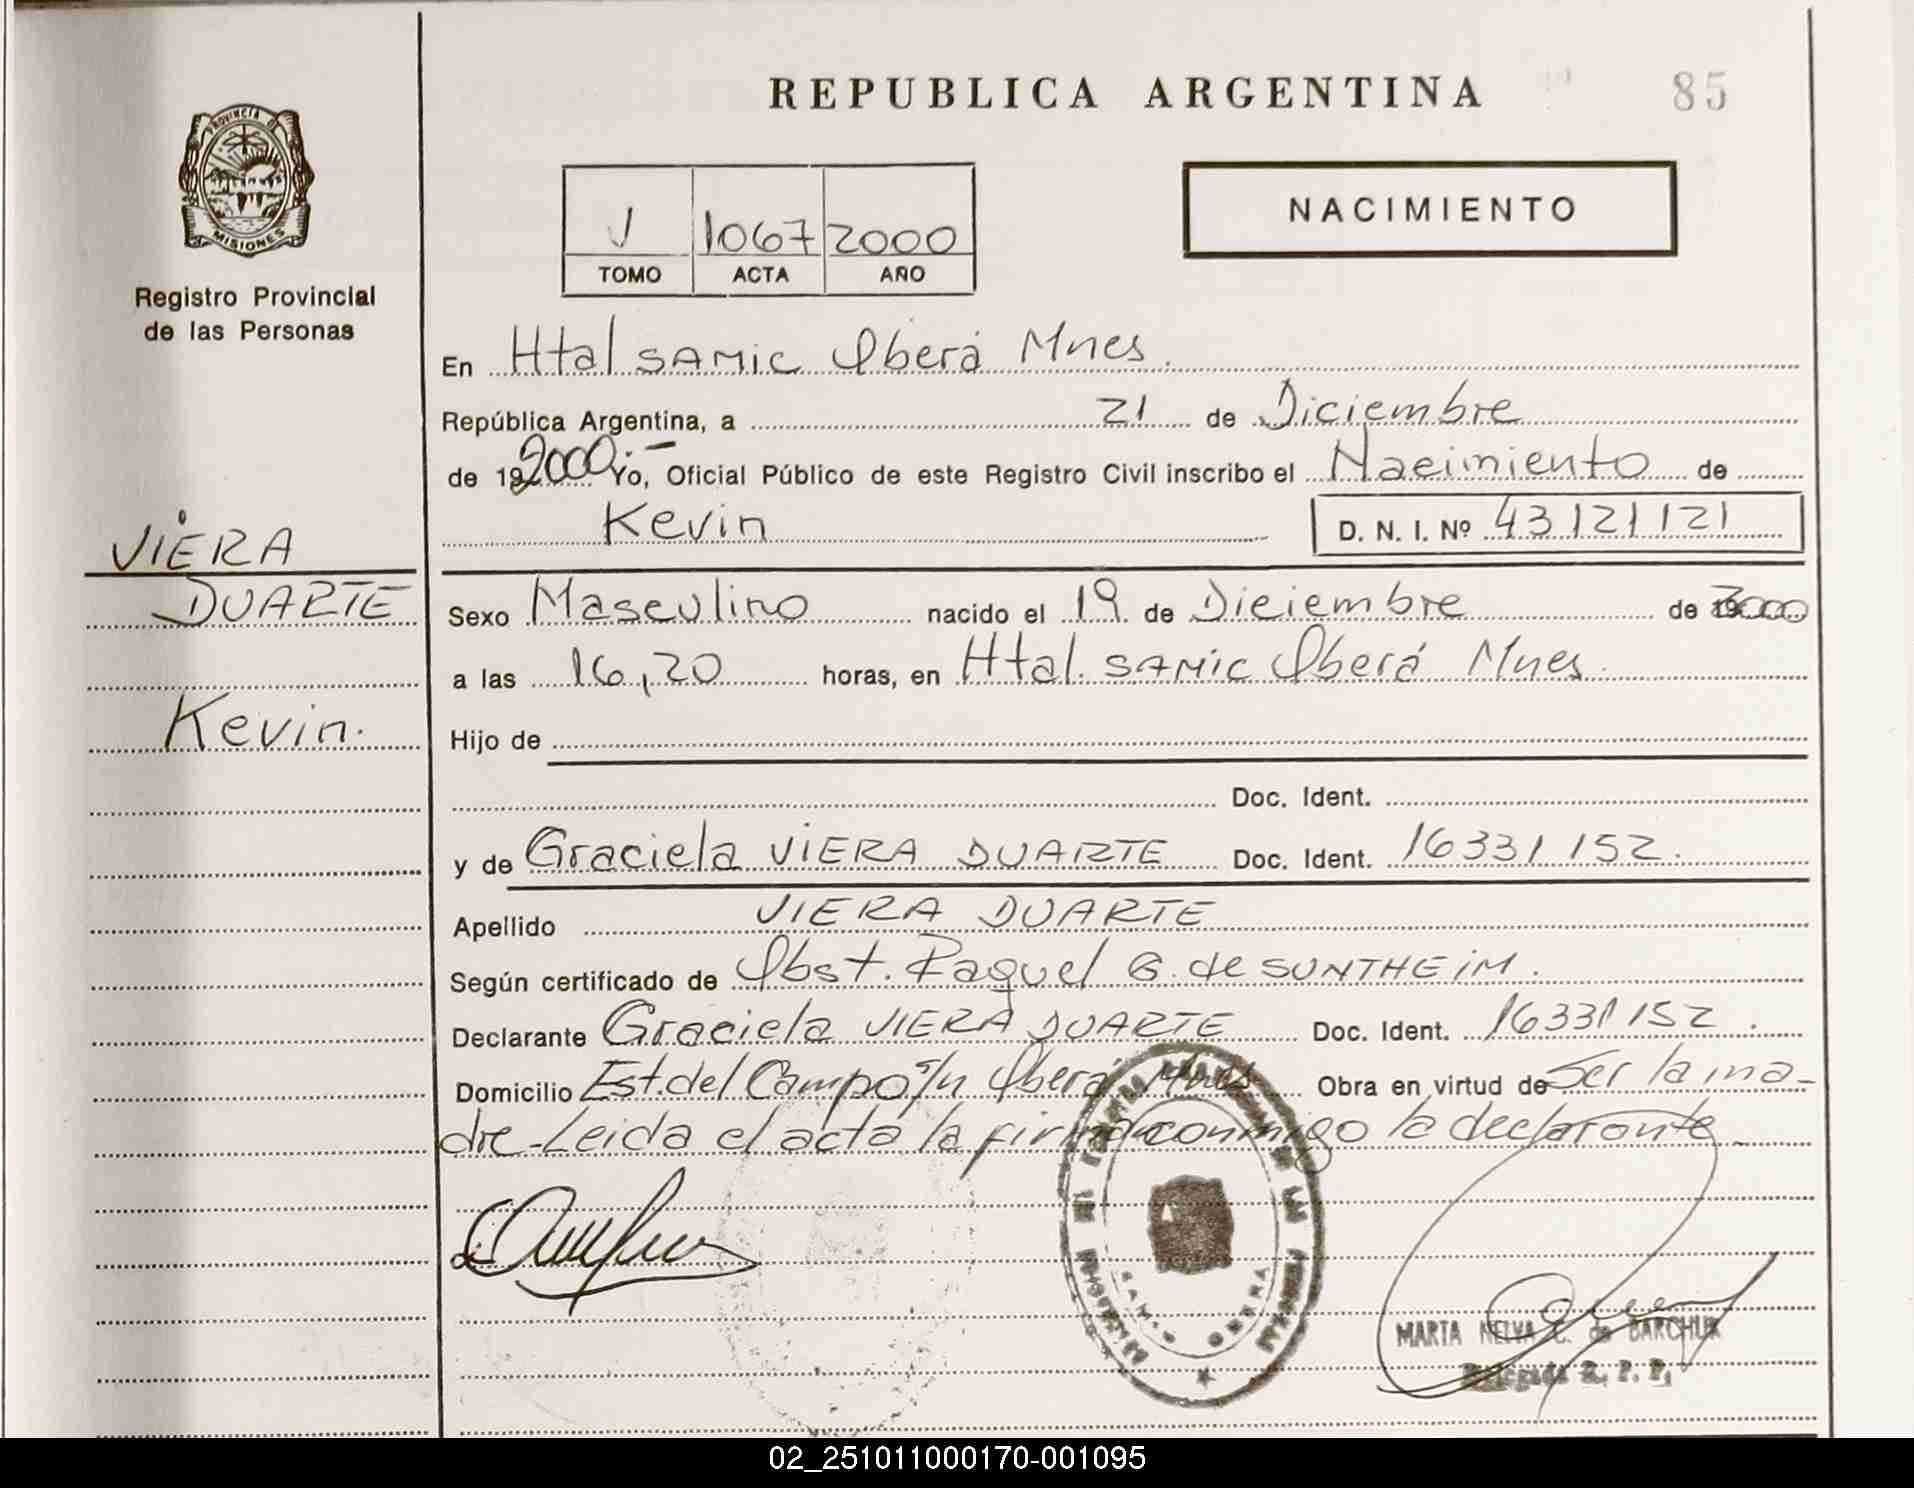 REPUBLICA ARGENTINA
85
PROVINCIA DE
MISIONES
Registro Provincial
de las Personas
J 1067 2000
TOMO ACTA AÑO
NACIMIENTO
En Htal SAMIC Oberá Mnes.
República Argentina, a 21 de Diciembre
de 192000.- Yo, Oficial Público de este Registro Civil inscribo el Nacimiento de
Kevin D. N. I. Nº 43121121
VIERA
DUARTE
Kevin.
Sexo Masculino nacido el 19 de Diciembre de 2000
a las 16,20 horas, en Htal. SAMIC Oberá Mnes.
Hijo de
Doc. Ident.
y de Graciela VIERA DUARTE Doc. Ident. 16331152.
Apellido VIERA DUARTE
Según certificado de Obst. Raquel G. de SUNTHEIM.
Declarante Graciela VIERA DUARTE Doc. Ident. 16331152.
Domicilio Est. del Campo s/n Oberá Mnes Obra en virtud de Ser la ma-
dre - Leida el acta la firma conmigo la declarante
MARTA NELVA C. de BARCHUK
Delegada R. P. P.
02_251011000170-001095